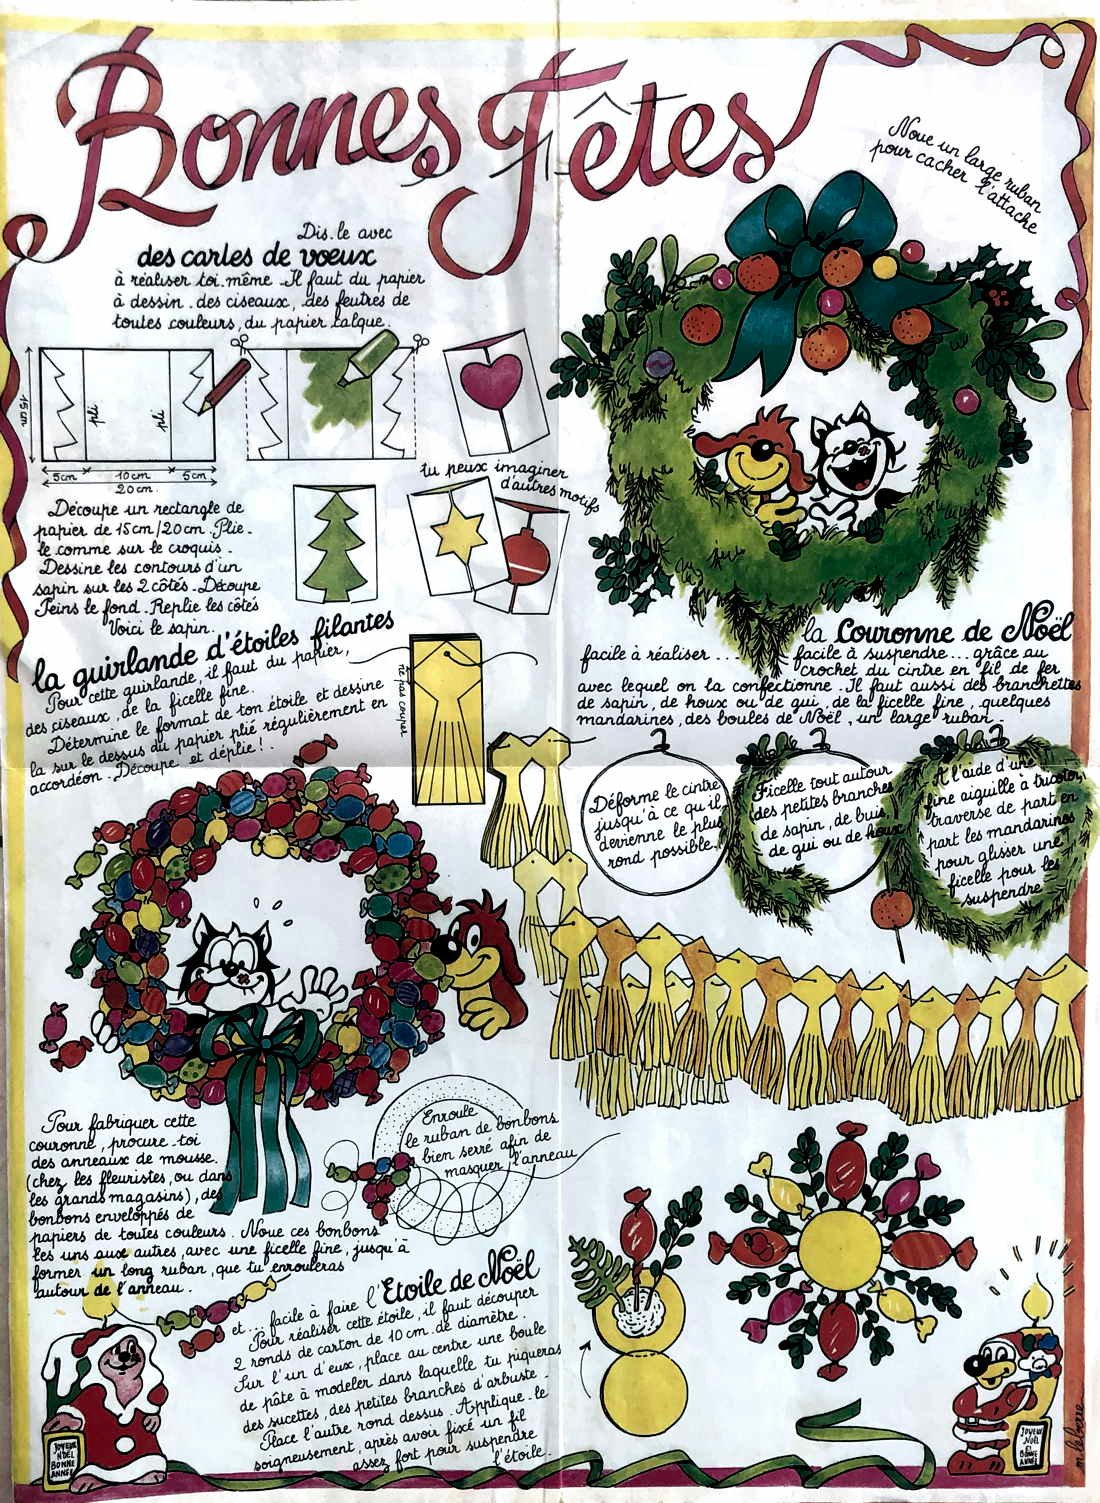 Bonnes Fêtes
Noue un large ruban
pour cacher l'attache
Dis-le avec
des cartes de vœux
à réaliser toi-même. Il faut du papier
à dessin, des ciseaux, des feutres de
toutes couleurs, du papier calque.
15 cm
pli
pli
5 cm
10 cm
5 cm
20 cm.
tu peux imaginer
d'autres motifs
Découpe un rectangle de
papier de 15 cm/20 cm. Plie-
le comme sur le croquis.
Dessine les contours d'un
sapin sur les 2 côtés. Découpe
Peins le fond. Replie les côtés
Voici le sapin.
la guirlande d'étoiles filantes
Pour cette guirlande, il faut du papier,
des ciseaux, de la ficelle fine.
Détermine le format de ton étoile et dessine
la sur le dessus du papier plié régulièrement en
accordéon. Découpe et déplie !.
ne pas couper
la Couronne de Noël
facile à réaliser... facile à suspendre... grâce au
crochet du cintre en fil de fer
avec lequel on la confectionne. Il faut aussi des branchettes
de sapin, de houx ou de gui, de la ficelle fine, quelques
mandarines, des boules de Noël, un large ruban.
Déforme le cintre
jusqu'à ce qu'il
devienne le plus
rond possible.
Ficelle tout autour
des petites branches
de sapin, de buis,
de gui ou de houx
A l'aide d'une
fine aiguille à tricoter,
traverse de part en
part les mandarines
pour glisser une
ficelle pour les
suspendre
Pour fabriquer cette
couronne, procure-toi
des anneaux de mousse.
(chez les fleuristes, ou dans
les grands magasins), des
bonbons enveloppés de
papiers de toutes couleurs. Noue ces bonbons
les uns aux autres, avec une ficelle fine, jusqu'à
former un long ruban, que tu enrouleras
autour de l'anneau.
Enroule
le ruban de bonbons
bien serré afin de
masquer l'anneau
et... facile à faire l'Etoile de Noël
Pour réaliser cette étoile, il faut découper
2 ronds de carton de 10 cm. de diamètre.
Sur l'un d'eux, place au centre une boule
de pâte à modeler dans laquelle tu piqueras
des sucettes, des petites branches d'arbuste.
Place l'autre rond dessus. Applique-le
soigneusement, après avoir fixé un fil
assez fort pour suspendre
l'étoile.
JOYEUX
NOËL
BONNE
ANNÉE
JOYEUX
NOËL
ET
BONNE
ANNÉE